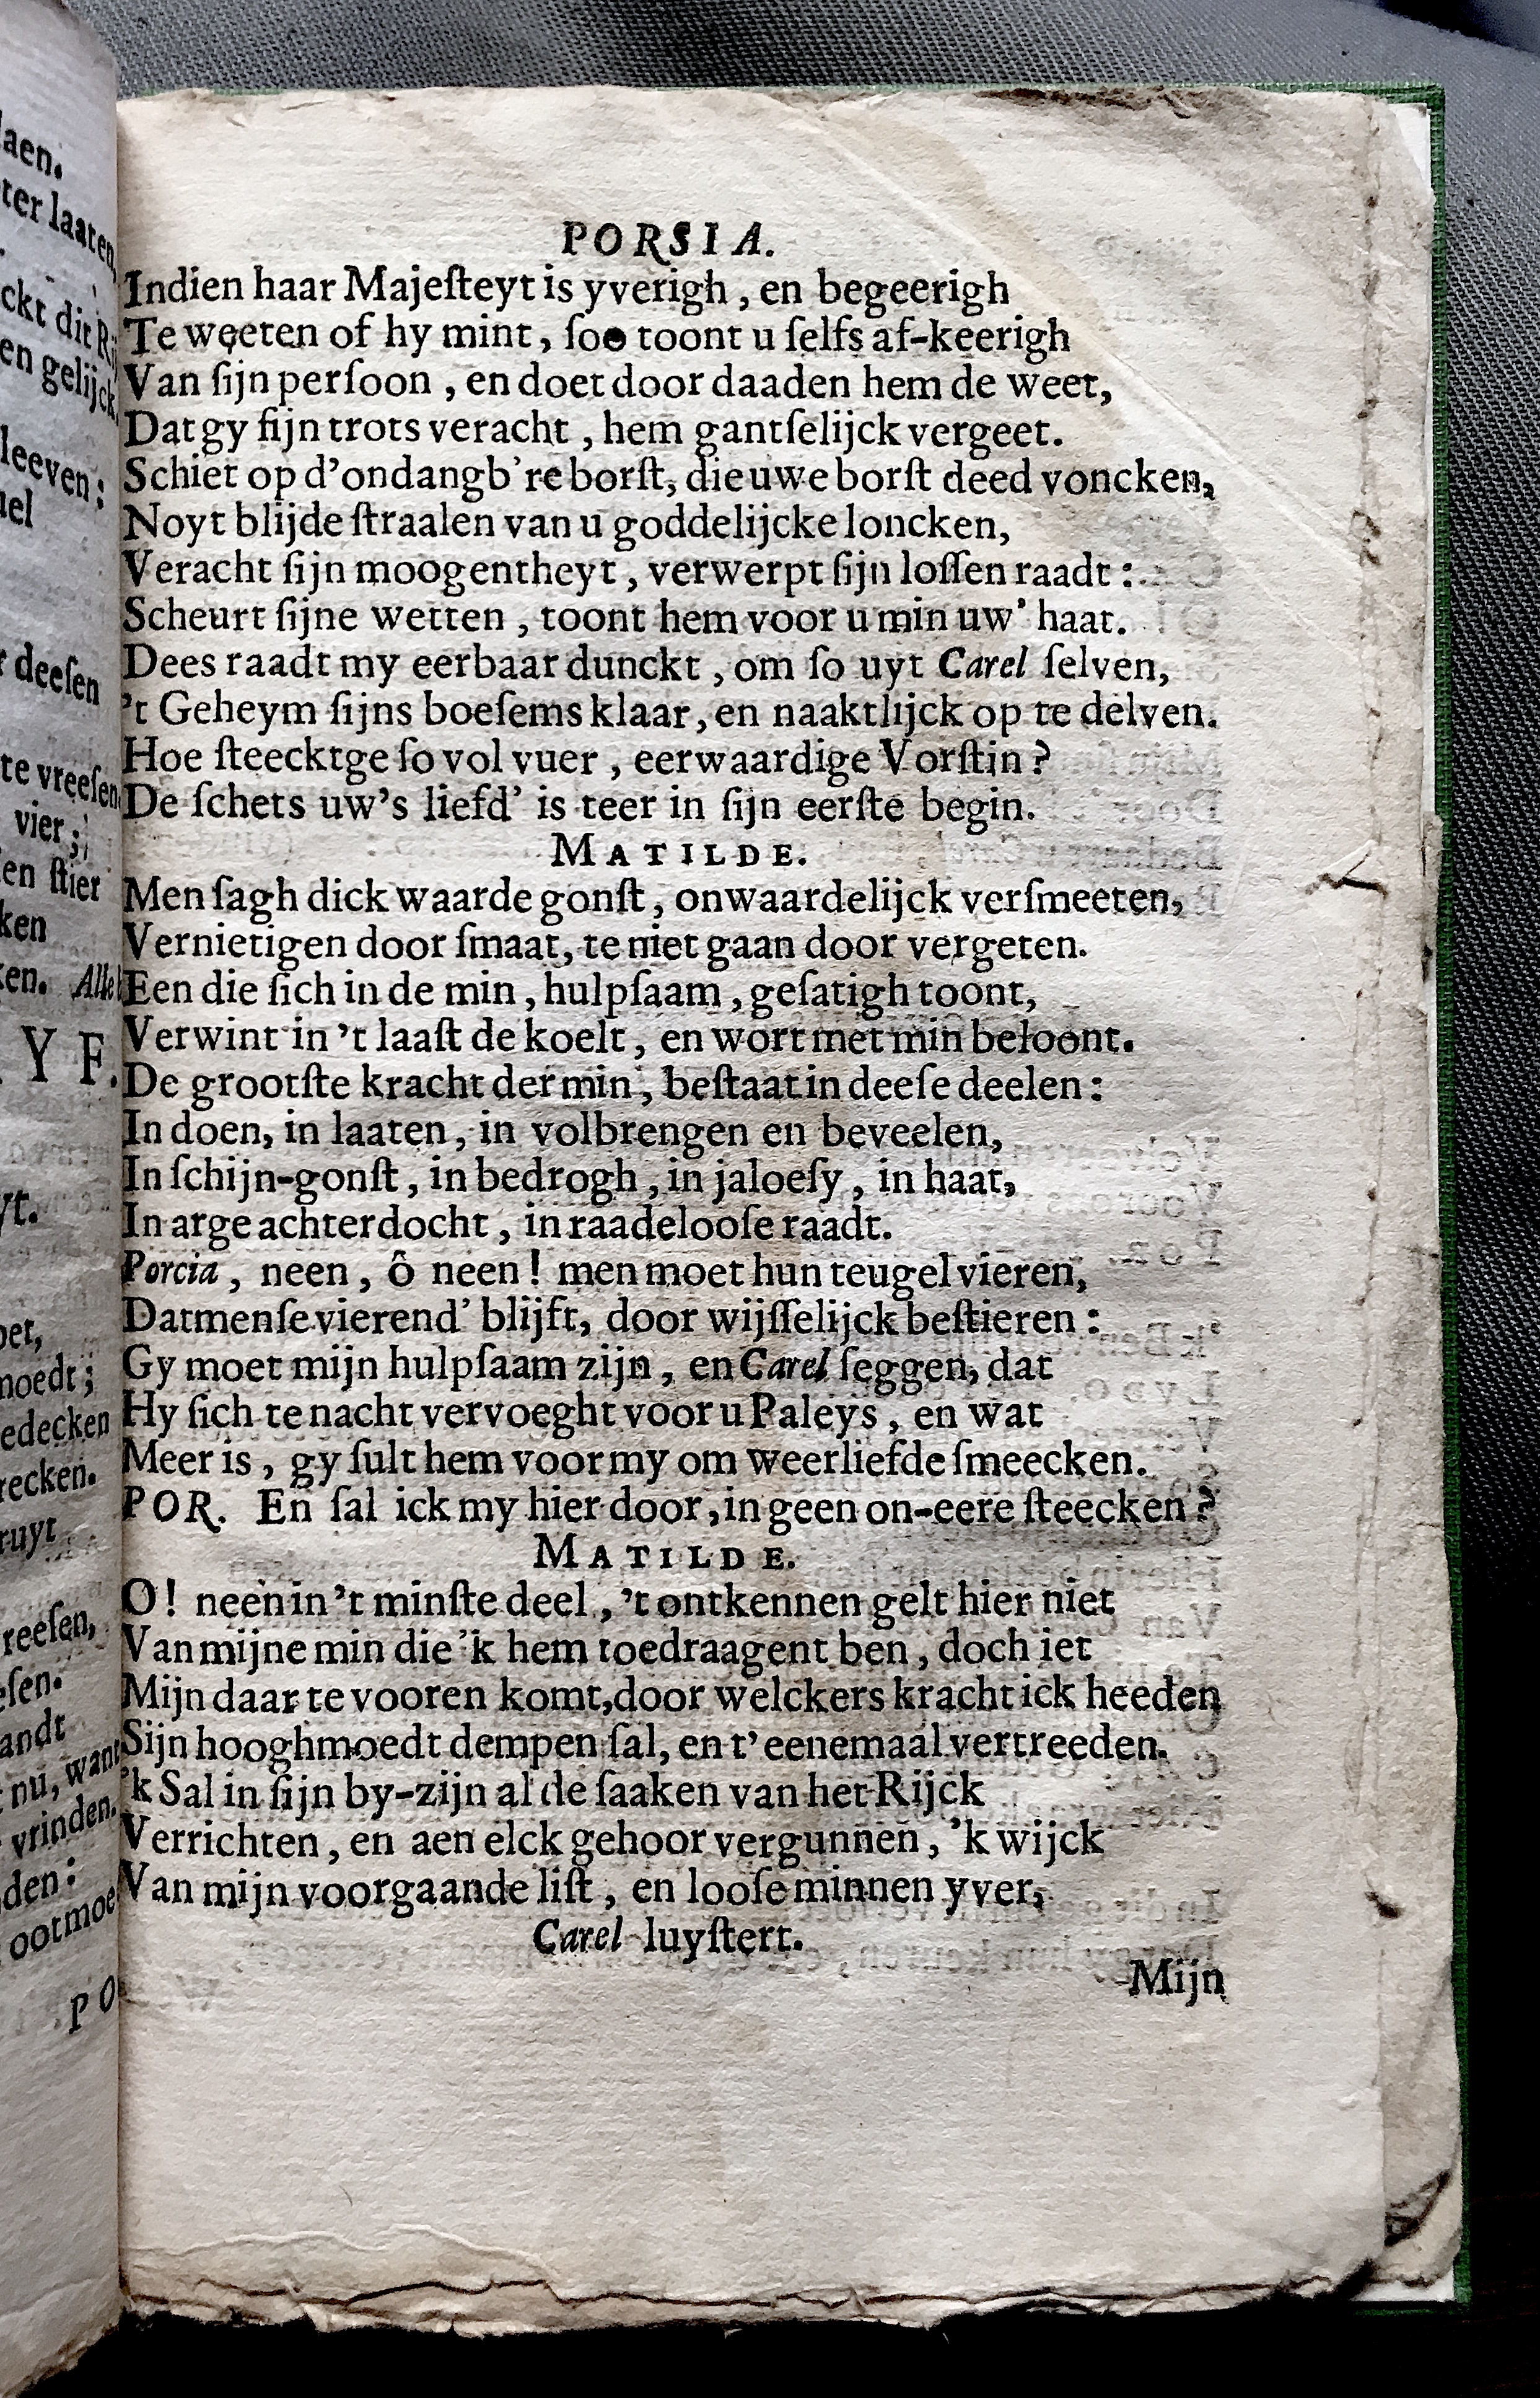 PORSIA.
Indien haar Majeſteyt is yverigh, en begeerigh
Te weeten of hy mint, ſoo toont u ſelfs af-keerigh
Van ſijn perſoon, en doet door daaden hem de weet,
Dat gy ſijn trots veracht, hem gantſelijck vergeet.
Schiet op d'ondangb're borſt, die uwe borſt deed voncken,
Noyt blijde ſtraalen van u goddelijcke loncken,
Veracht ſijn moogentheyt, verwerpt ſijn loſſen raadt:
Scheurt ſijne wetten, toont hem voor u min uw' haat.
Dees raadt my eerbaar dunckt, om ſo uyt Carel ſelven,
't Geheym ſijns boeſems klaar, en naaktlijck op te delven.
Hoe ſteecktge ſo vol vuer, eerwaardige Vorſtin?
De ſchets uw's liefd' is teer in ſijn eerſte begin.
MATILDE.
Men ſagh dick waarde gonſt, onwaardelijck verſmeeten,
Vernietigen door ſmaat, te niet gaan door vergeten.
Een die ſich in de min, hulpſaam, geſatigh toont,
Verwint in 't laaſt de koelt, en wort met min beloont.
De grootſte kracht der min, beſtaat in deeſe deelen:
In doen, in laaten, in volbrengen en beveelen,
In ſchijn-gonſt, in bedrogh, in jaloeſy, in haat,
In arge achterdocht, in raadelooſe raadt.
Porcia, neen, ô neen! men moet hun teugel vieren,
Datmenſe vierend' blijft, door wijſſelijck beſtieren:
Gy moet mijn hulpſaam zijn, en Carel ſeggen, dat
Hy ſich te nacht vervoeght voor u Paleys, en wat
Meer is, gy ſult hem voor my om weerliefde ſmeecken.
POR. En ſal ick my hier door, in geen on-eere ſteecken?
MATILDE.
O! neen in 't minſte deel, 't ontkennen gelt hier niet
Van mijne min die 'k hem toedraagent ben, doch iet
Mijn daar te vooren komt, door welckers kracht ick heeden
Sijn hooghmoedt dempen ſal, en t'eenemaal vertreeden.
'k Sal in ſijn by-zijn al de ſaaken van het Rijck
Verrichten, en aen elck gehoor vergunnen, 'k wijck
Van mijn voorgaande liſt, en looſe minnen yver,
Carel luyſtert.
Mijn